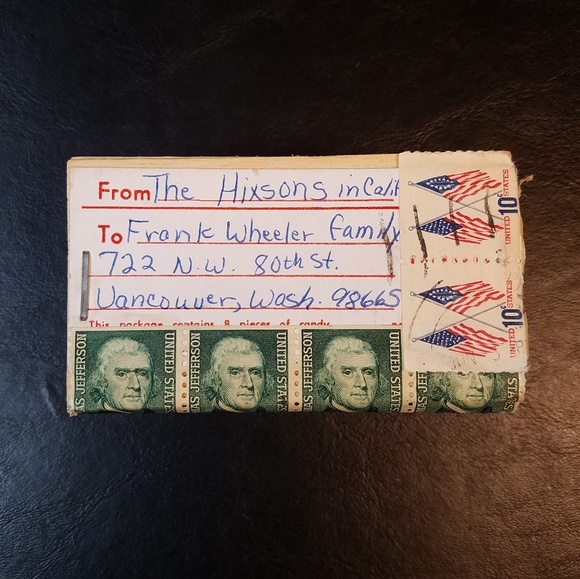 From The Hixsons in Calif
To Frank Wheeler family
722 N.W. 80th St.
Vancouver, Wash. 98665
This package contains 8 pieces of candy
10c UNITED STATES
10c UNITED STATES
AS JEFFERSON UNITED STATES
AS JEFFERSON UNITED STATES
AS JEFFERSON UNITED STATES
AS JEFF UNITED STATES